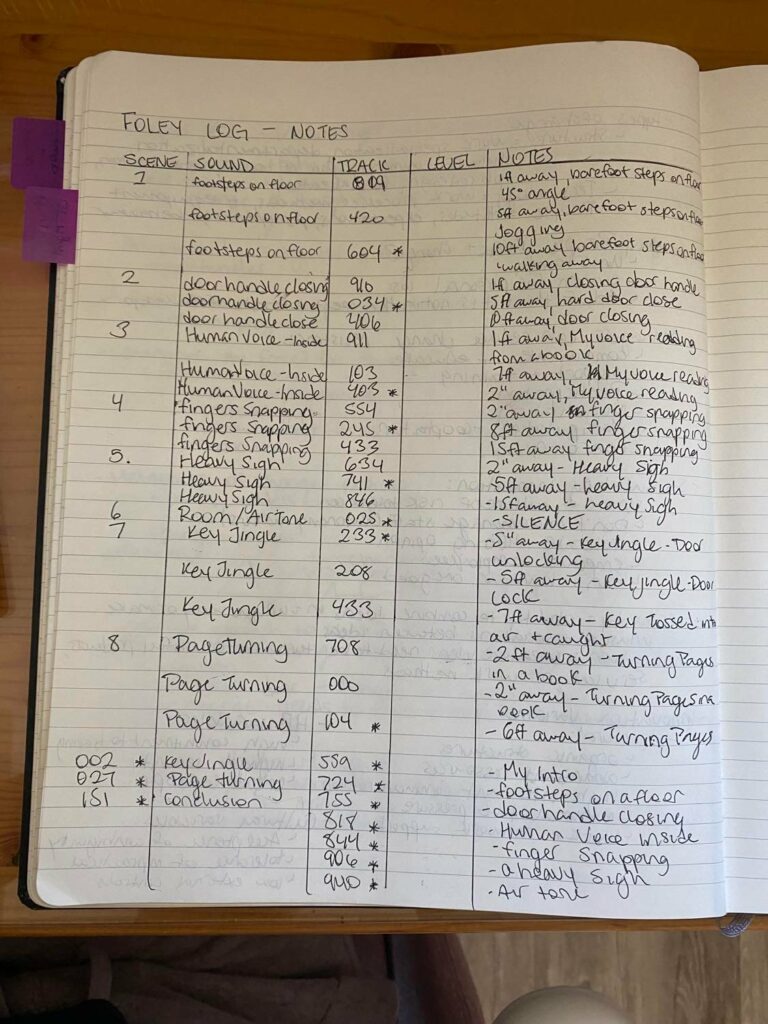 FOLEY LOG - NOTES
SCENE SOUND TRACK LEVEL NOTES
1 footsteps on floor 809 1ft away, barefoot steps on floor
45° angle
footsteps on floor 420 5ft away, barefoot steps on floor
Jogging
footsteps on floor 604 * 10ft away barefoot steps on floor
walking away
2 door handle closing 910 1ft away, closing door handle
door handle closing 034 * 5ft away, hard door close
door handle close 406 10ft away, door closing
3 Human Voice - Inside 911 1ft away, My voice reading
from a book
Human Voice - Inside 103 7ft away, My voice reading
Human Voice - Inside 403 * 2" away, My voice reading
4 fingers snapping 554 2" away finger snapping
fingers snapping 245 * 8ft away finger snapping
fingers snapping 433 15ft away finger snapping
5. Heavy Sigh 634 2" away - Heavy Sigh
Heavy Sigh 741 * -5ft away - heavy sigh
Heavy Sigh 846 -15ft away - heavy Sigh
6 Room/Air Tone 025 * -SILENCE
7 Key Jingle 233 * -5" away - Key Jingle - Door
unlocking
Key Jingle 208 -5ft away - Key jingle - Door
Lock
Key Jingle 433 -7ft away - Key Tossed into
air + caught
8 Page Turning 708 -2ft away - Turning Pages
in a book
Page Turning 000 -2" away - Turning Pages in a
book
Page Turning 104 * -6ft away - Turning Pages
002 * Key Jingle 559 * - My Intro
027 * Page turning 724 * -footsteps on a floor
151 * Conclusion 755 * -door handle closing
818 * -Human Voice inside
844 * -finger snapping
906 * -a heavy sigh
940 * -Air tone